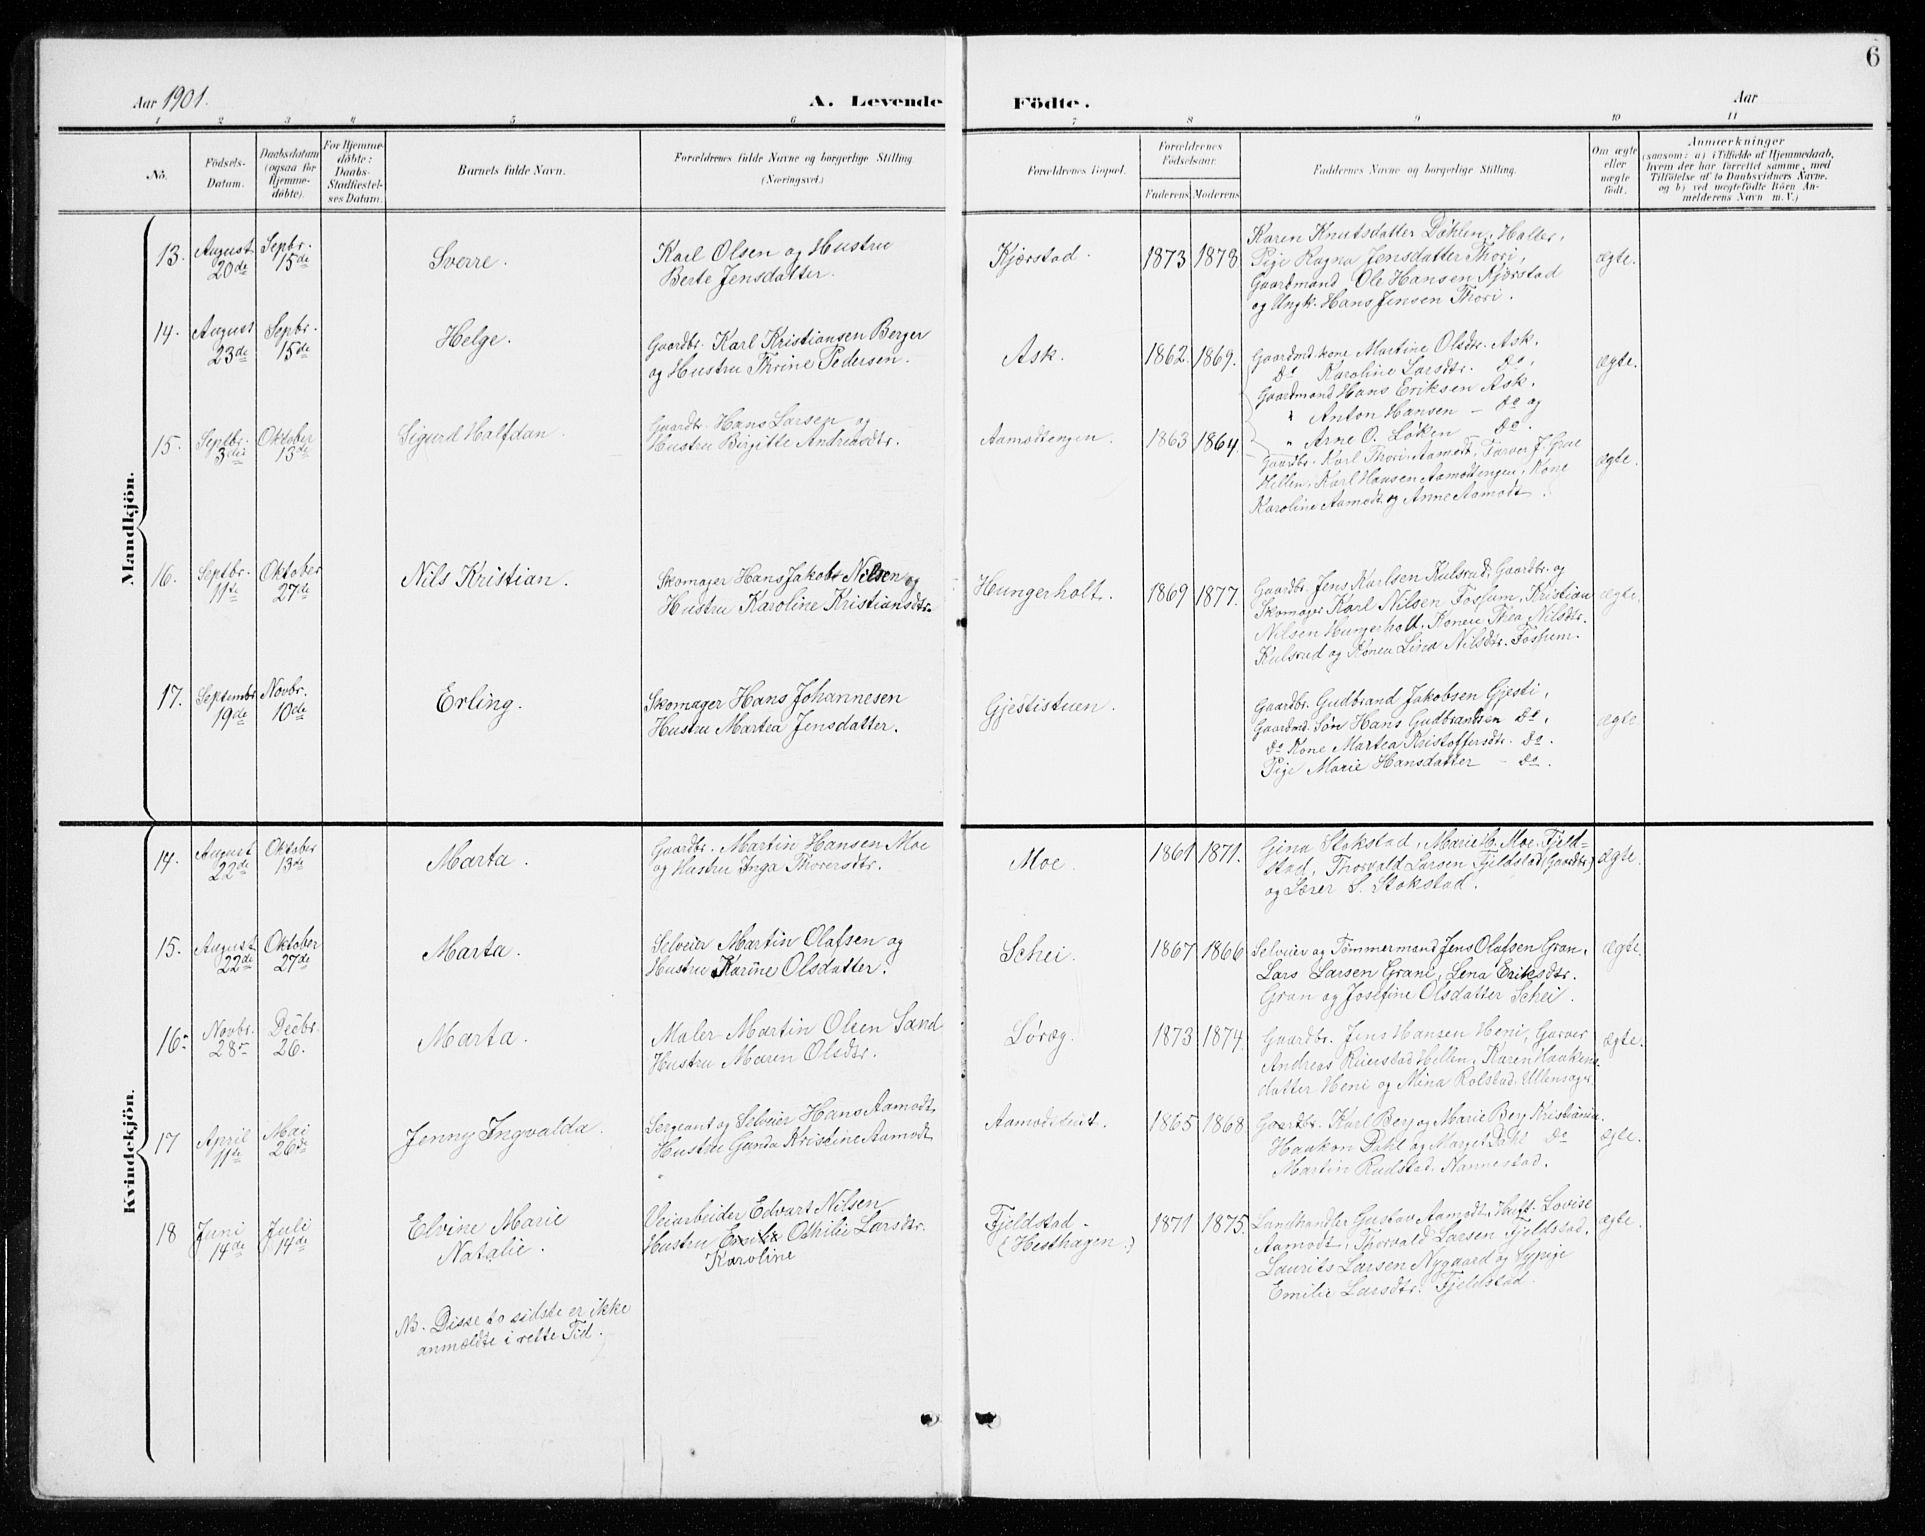 6
Aar 1901.
A. Levende Födte.
Aar
1 2 3 4 5 6 7 8 9 10 11
No.
Födsels-
Datum.
Daabsdatum
(ogsaa for
Hjemme-
døbte).
For Hjemme-
døbte:
Daabs-
Stadfæstel-
ses Datum.
Barnets fulde Navn.
Forældrenes fulde Navne og borgerlige Stilling
(Næringsvei.)
Forældrenes Bopæl.
Forældrenes
Födselsaar.
Faderens Moderens
Faddernes Navne og borgerlige Stilling.
Om ægte
eller
uægte
født.
Anmærkninger
(saasom: a) i Tilfælde af Hjemmedaab,
hvem der har forrettet samme, med
Tilføielse af to Daabsvidners Navne.
og b) ved uægtefødte Börn An-
melderens Navn m.V.)
Mandkjön.
13. August 20de
Sepbr. 15de
Sverre.
Karl Olsen og Hustru
Berte Jensdatter.
Kjærstad.
1873 1878
Karen Knutsdatter Døhlen, Holter,
Pige Ragna Jensdatter Thori,
Gaardmand Ole Hansen Kjærstad
og Ungk. Hans Jensen Thori.
ægte.
14. August 23de
Sepbr. 15de
Helge.
Gaardbr. Karl Kristiansen Berger
og Hustru Thrine Pedersen.
Ask.
1862 1869.
Gaardmd. kone Martine Olsdtr. Ask,
Do Karoline Larsdtr. Do,
Gaardmand Hans Eriksen Ask,
" Anton Hansen - Do og
" Arne O. Løken Do.
ægte.
15. Septbr. 3die
Oktober 13de
Sigurd Halfdan.
Gaardbr. Hans Larsen og
Hustru Birgitte Andreasdtr.
Aamodtengen.
1863 1864.
Gaardbr. Karl Thori Aamodt, Farver J.
Hellen, Karl Hansen Aamodtengen, Kone
Karoline Aamodt og Anne Aamodt.
ægte.
16. Septbr. 11te
Oktober 27de
Nils Kristian.
Skomager Hans Jakob Nilsen og
Hustru Karoline Kristiansdtr.
Hungerholt.
1869 1877.
Gaardbr. Jens Karlsen Kulsrud, Gaardbr. og
Skomager Karl Nilsen Fossum, Kristian
Nilsen Hungerholt, Konen Thea Nilsdtr.
Kulsrud og Konen Lina Nilsdtr. Fossum.
ægte.
17. Septembr 19de
Novbr. 10de
Erling.
Skomager Hans Johannesen
Hustru Martea Jensdatter.
Gjestistuen.
Gaardbr. Gudbrand Jakobsen Gjesti,
Gaardmd. Søn Hans Gudbrandsen Do,
Do Kone Martea Kristoffersdtr. Do.
Pige Marie Hansdatter - Do.
ægte
Kvindekjön.
14. August 22de
Oktober 13de
Marta.
Gaardbr. Martin Hansen Moe
og Hustru Inga Thorersdtr.
Moe.
1861 1871.
Gina Stokstad, Marie H. Moe, Fjeld-
stad, Thorvald Larsen Fjeldstad (Gaardbr.)
og Lærer S. Stokstad.
ægte.
15. August 22de
Oktober 27de
Marta.
Selveier Martin Olafsen og
Hustru Karine Olsdatter.
Schei.
1867 1866
Selveier og Tømmermand Jens Olafsen Gran,
Lars Larsen Grani, Lena Eriksdtr.
Gran og Josefine Olsdatter Schei.
ægte.
16. Novbr. 28de
Decbr. 26.
Marta.
Maler Martin Olsen Sand
Hustru Maren Olsdtr.
Løræg.
1873 1874.
Gaardbr. Jens Hansen Heni, Garver
Andreas Hellen, Karen Haakens-
datter Heni og Mina Rolstad, Ullensager.
ægte.
17 April 11te
Mai 26de
Jenny Ingvalda.
Sergeant og Selveier Hans Aamodt
Hustru Gunda Kristine Aamodt
1865 1868
Gaardbr. Karl Berg og Marie Berg Kristiania.
Haakon Dahl og Margit Dahl Do
Martin Rudstad, Nannestad.
ægte.
18 Juni 14de
Juli 14de
Elvine Marie
Natalie.
Veiarbeider Edvart Nilsen
Hustru Othilie Larsdtr.
Karoline
Fjeldstad
(Hesthagen.)
1871 1875.
Landhandler Gustav Aamodt, Hust. Lovise
Aamodt, Thorvald Larsen Fjeldstad,
Laurits Larsen Nygaard og Sypige
Emilie Larsdtr. Fjeldstad.
ægte.
NB. Disse to sidste er ikke
anmeldte i rette Tid.